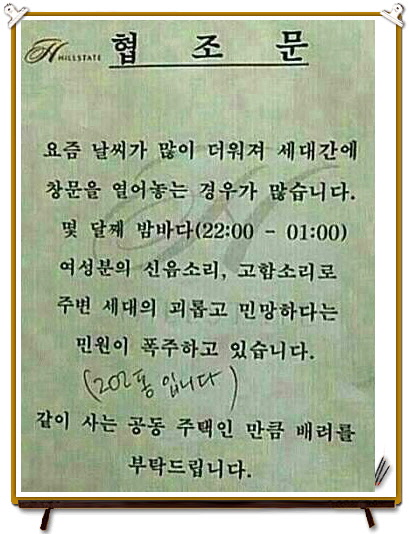 HILLSTATE 협 조 문
요즘 날씨가 많이 더워져 세대간에
창문을 열어놓는 경우가 많습니다.
몇 달께 밤바다(22:00 - 01:00)
여성분의 신음소리, 고함소리로
주변 세대의 괴롭고 민망하다는
민원이 폭주하고 있습니다.
(202동 입니다)
같이 사는 공동 주택인 만큼 배려를
부탁드립니다.